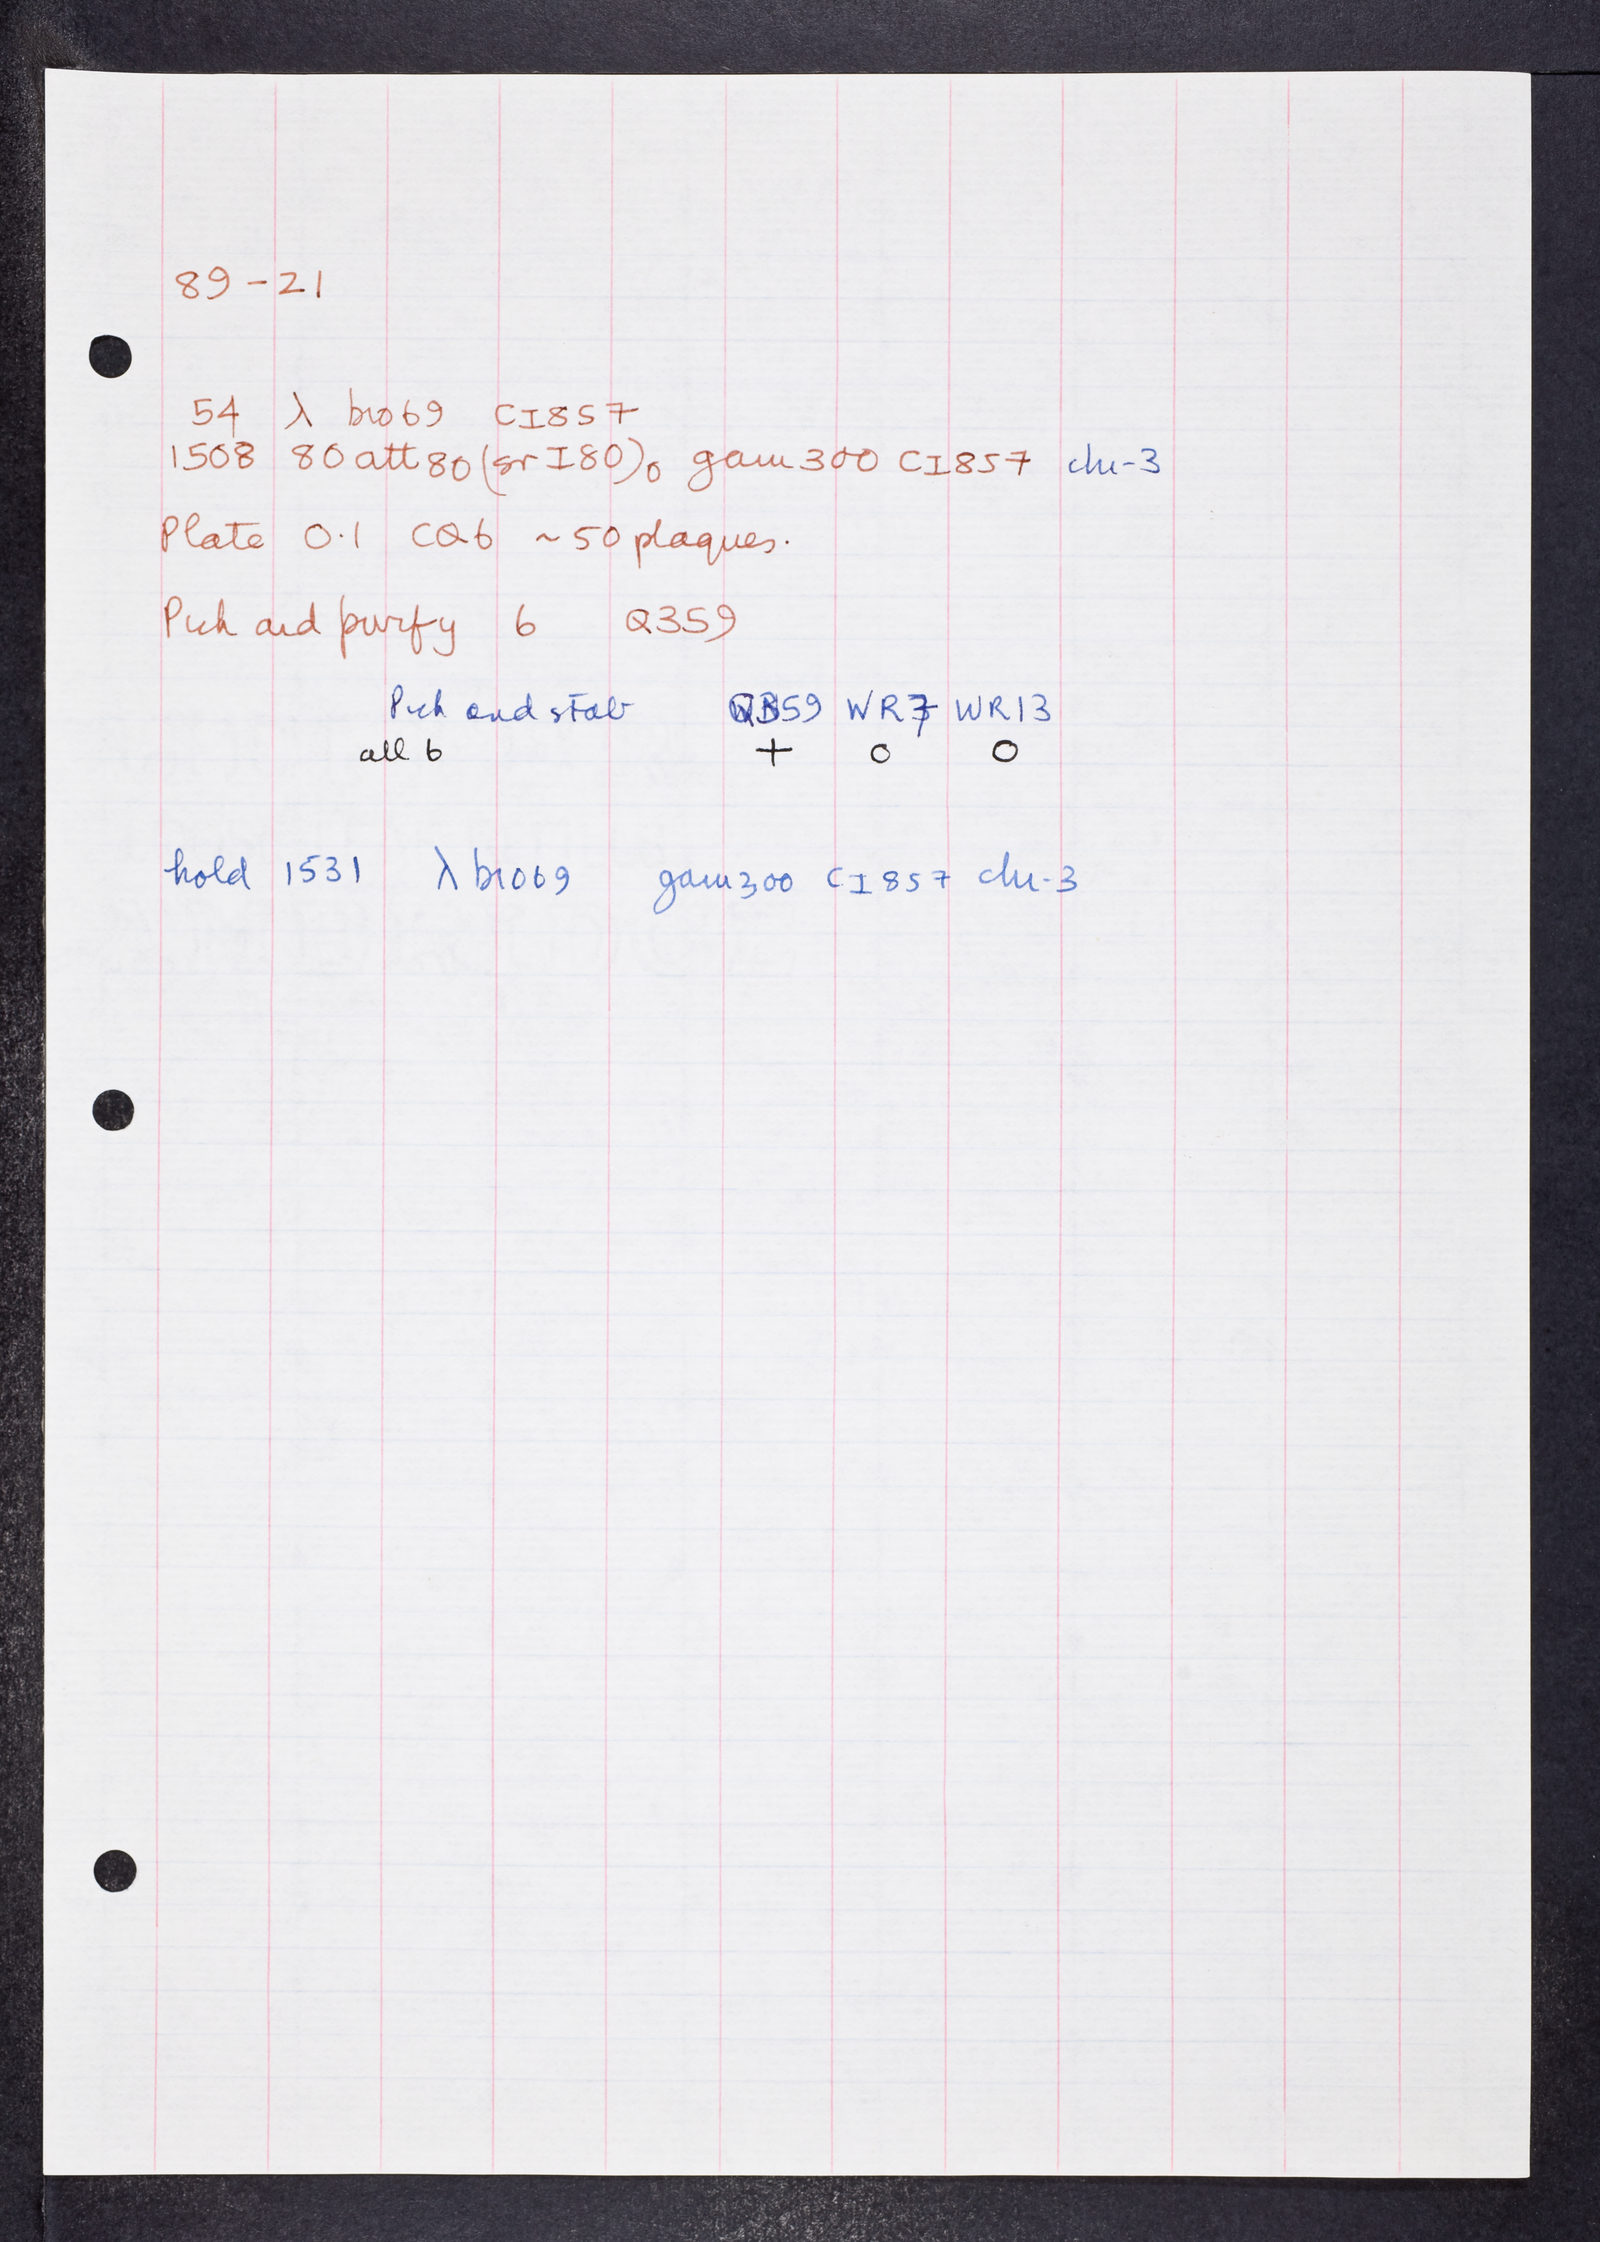 89-21
54 λ bio69 CI857
1508 80att80(srI80)0 gam300 CI857 chi-3
Plate 0.1 CQ6 ~50 plaques.
Pick and purify 6 Q359
Pick and stab Q359 WR7 WR13
all 6 + 0 0
hold 1531 λbio69 gam300 CI857 chi-3